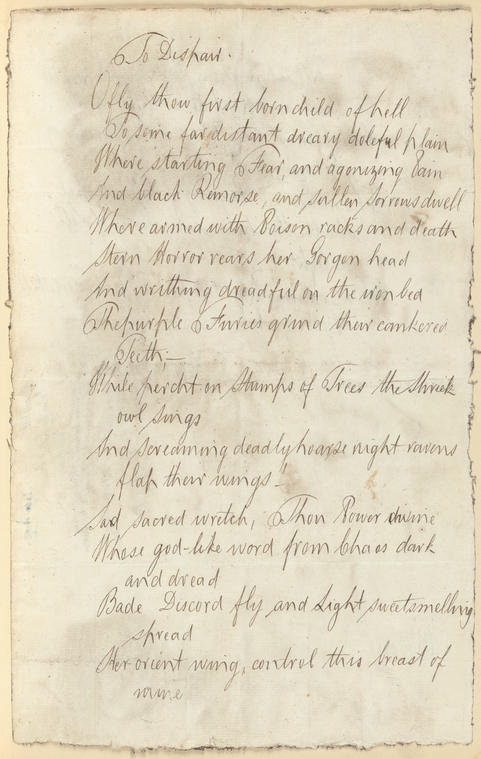 To Dispair.
O fly thou first born child of hell
To some far distant dreary doleful plain
Where starting Fear, and agonizing Pain
And black Remorse, and sullen sorrows dwell
Where armed with Poison racks and death
Stern Horror rears her Gorgon head
And writhing dreadful on the iron bed
The purple Furies grind their cankered
Teeth,—
While percht on stumps of Trees the shriek
owl sings
And screaming deadly hoarse night ravens
flap their wings!
sacred wretch, Thou Power divine
Whose god-like word from Chaos dark
and dread
Bade Discord fly and Light sweetsmelling
spread
Her orient wing, control this breast of
mine